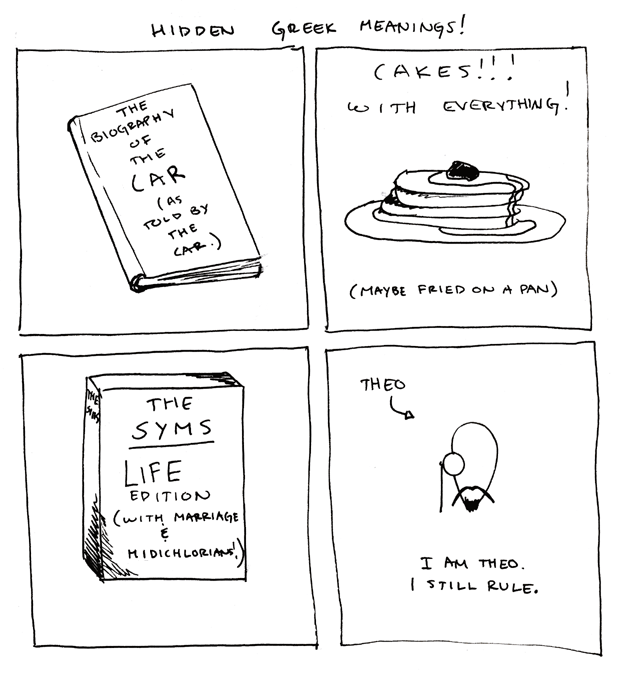 HIDDEN GREEK MEANINGS!
THE
BIOGRAPHY
OF
THE
CAR
(AS
TOLD BY
THE
CAR.)
CAKES!!!
WITH EVERYTHING!
(MAYBE FRIED ON A PAN)
THE
SYMS
THE
SYMS
LIFE
EDITION
(WITH MARRIAGE
&
MIDICHLORIANS!)
THEO
I AM THEO.
I STILL RULE.